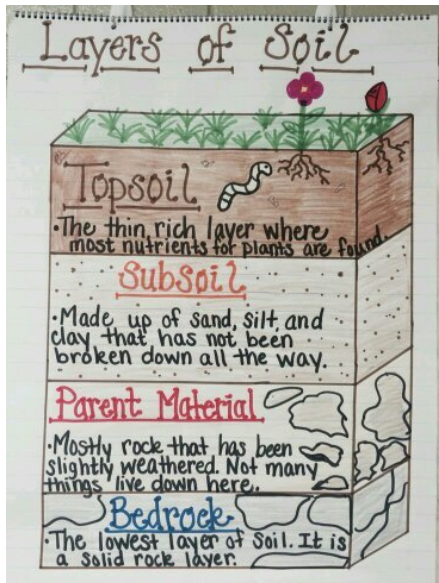 Layers of Soil
Topsoil
•The thin, rich layer where
most nutrients for plants are found.
Subsoil
•Made up of sand, silt, and
clay that has not been
broken down all the way.
Parent Material
•Mostly rock that has been
slightly weathered. Not many
things live down here.
Bedrock
•The lowest layer of Soil. It is
a solid rock layer.